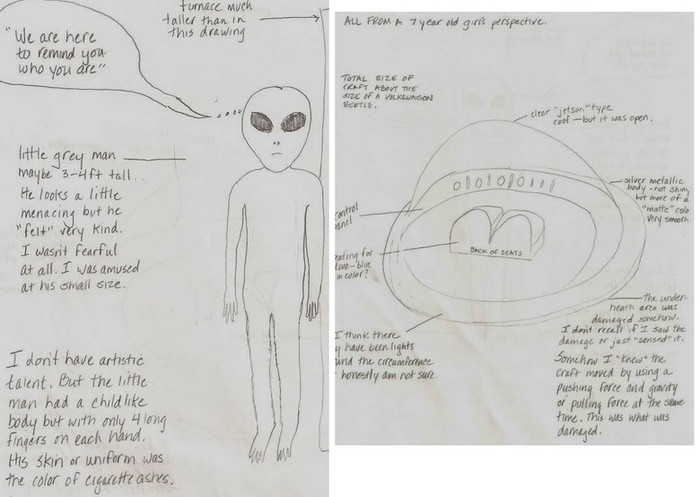 furnace much
taller than in
this drawing
"We are here
to remind you
who you are"
little grey man
maybe 3-4ft tall.
He looks a little
menacing but he
"felt" very kind.
I wasn't fearful
at all. I was amused
at his small size.
I don't have artistic
talent. But the little
man had a childlike
body but with only 4 long
fingers on each hand.
His skin or uniform was
the color of cigarette ashes.
ALL FROM A 7 year old girl's perspective.
TOTAL SIZE OF
CRAFT ABOUT THE
SIZE OF A VOLKSWAGON
BEETLE.
clear "jetson" type
roof - but it was open.
silver metallic
body - not shiny
but more of a
"matte" colo
very smooth
control
anel
eating for
two - blue
in color?
BACK OF SEATS
I think there
y have been lights
und the circumference
honestly am not sure.
the under-
neath area was
damaged somehow.
I don't recall if I saw the
damage or just "sensed" it.
Somehow I "knew" the
craft moved by using a
pushing force and gravity
or pulling force at the same
time. This was what was
damaged.